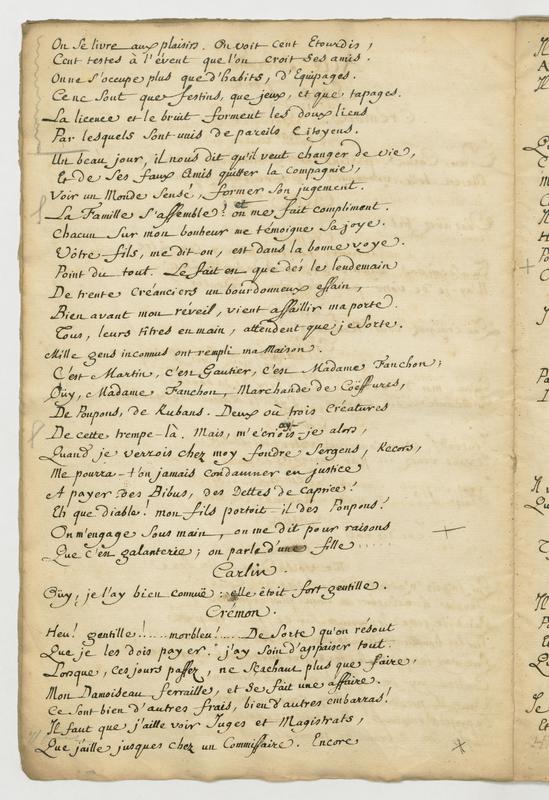 On se livre aux plaisirs. On voit cent Etourdis,
Cent testes à l'évent que l'on croit ses amis.
On ne s'occupe plus que d'habits, d'Equipages.
Ce ne sont que festins, que jeux, et que tapages.
La licence et le bruit forment les doux liens
Par lesquels sont unis de pareils Citoyens.
Un beau jour, il nous dit qu'il veut changer de vie,
Et de ses faux Amis quitter la compagnie,
Voir un Monde Sensé, former son jugement.
La Famille s'assemble! et on me fait compliment.
Chacun sur mon bonheur me témoigne sa joye.
Vôtre fils, me dit on, est dans la bonne voye.
Point du tout. Le fait est que dés le lendemain
De trente Créanciers un bourdonneux essain,
Bien avant mon réveil, vient assaillir ma porte.
Tous, leurs titres en main, attendent que je sorte.
Mille gens inconnus ont rempli ma Maison.
C'est Martin, c'est Gautier, c'est Madame Fanchon;
Oüy, Madame Fanchon, Marchande de Coëffures,
De Ponpons, de Rubans. Deux où trois Créatures
De cette trempe-là. Mais, m'écriay-je alors,
Quand je verrois chez moy fondre Sergens, Recors,
Me pourra-t'on jamais condamner en justice
A payer des Bibus, des Dettes de Caprice!
Eh que diable! mon fils portoit-il des Ponpons!
On m'engage sous main, on me dit pour raisons
Que c'en galanterie; on parle d'une fille.....
Carlin.
Oüy; je l'ay bien connuë: elle étoit fort gentille.
Crémon.
Heu! gentille!..... morbleu!.... De sorte qu'on résout
Que je les dois payer. j'ay soin d'appaiser tout.
Lorsque, ces jours passez, ne sçachant plus que faire,
Mon Damoiseau ferraille, et se fait une affaire.
Ce sont bien d'autres frais, bien d'autres embarras!
Il faut que j'aille voir Juges et Magistrats,
Que j'aille jusques chez un Commissaire. Encore